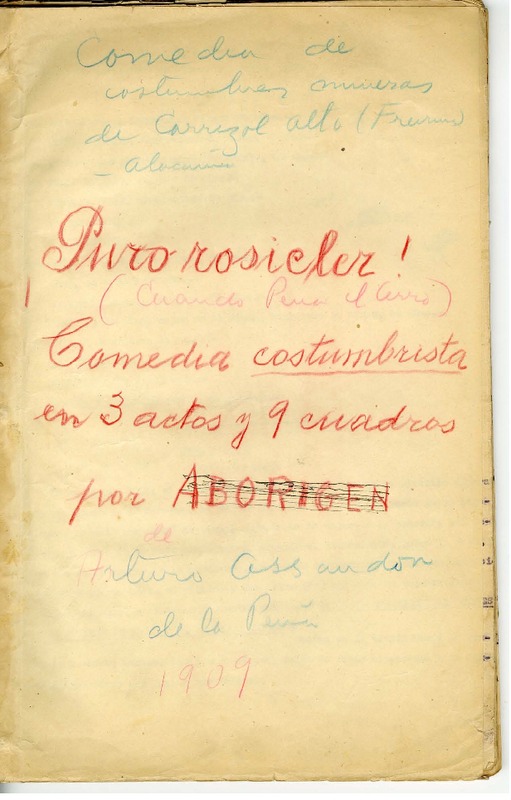 Comedia de
costumbres mineras
de Carrizal Alto (Freirina
- Atacama
¡Puro rosicler!
(Cuando Pena el Cerro)
Comedia costumbrista
en 3 actos y 9 cuadros
por ABORIGEN
de
Arturo Ossandón
de la Peña
1909